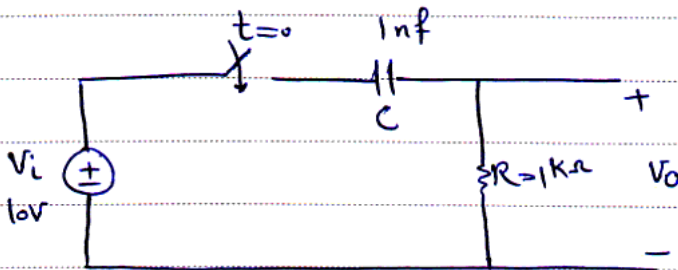 t=0
1nf
C
+
Vi
±
10V
R=1KΩ
Vo
−